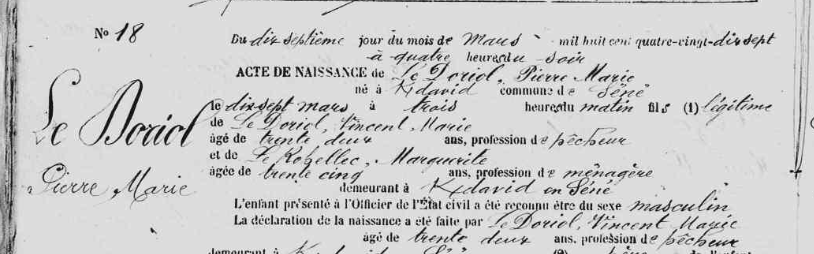 No 18
Du dix septième jour du mois de Mars mil huit cent quatre-vingt-dix sept
à quatre heures du soir
ACTE DE NAISSANCE de Le Doriol, Pierre Marie
né à K/david commune de Séné
le dix-sept mars à trois heures du matin fils (1) légitime
de Le Doriol, Vincent Marie
âgé de trente deux ans, profession de pêcheur
et de Le Rohellec, Marguerite
âgée de trente cinq ans, profession de ménagère
demeurant à K/david en Séné
L'enfant présenté à l'Officier de l'État civil a été reconnu être du sexe masculin
La déclaration de la naissance a été faite par Le Doriol, Vincent Marie
âgé de trente deux ans, profession de pêcheur
demeurant à
Le Doriol
Pierre Marie